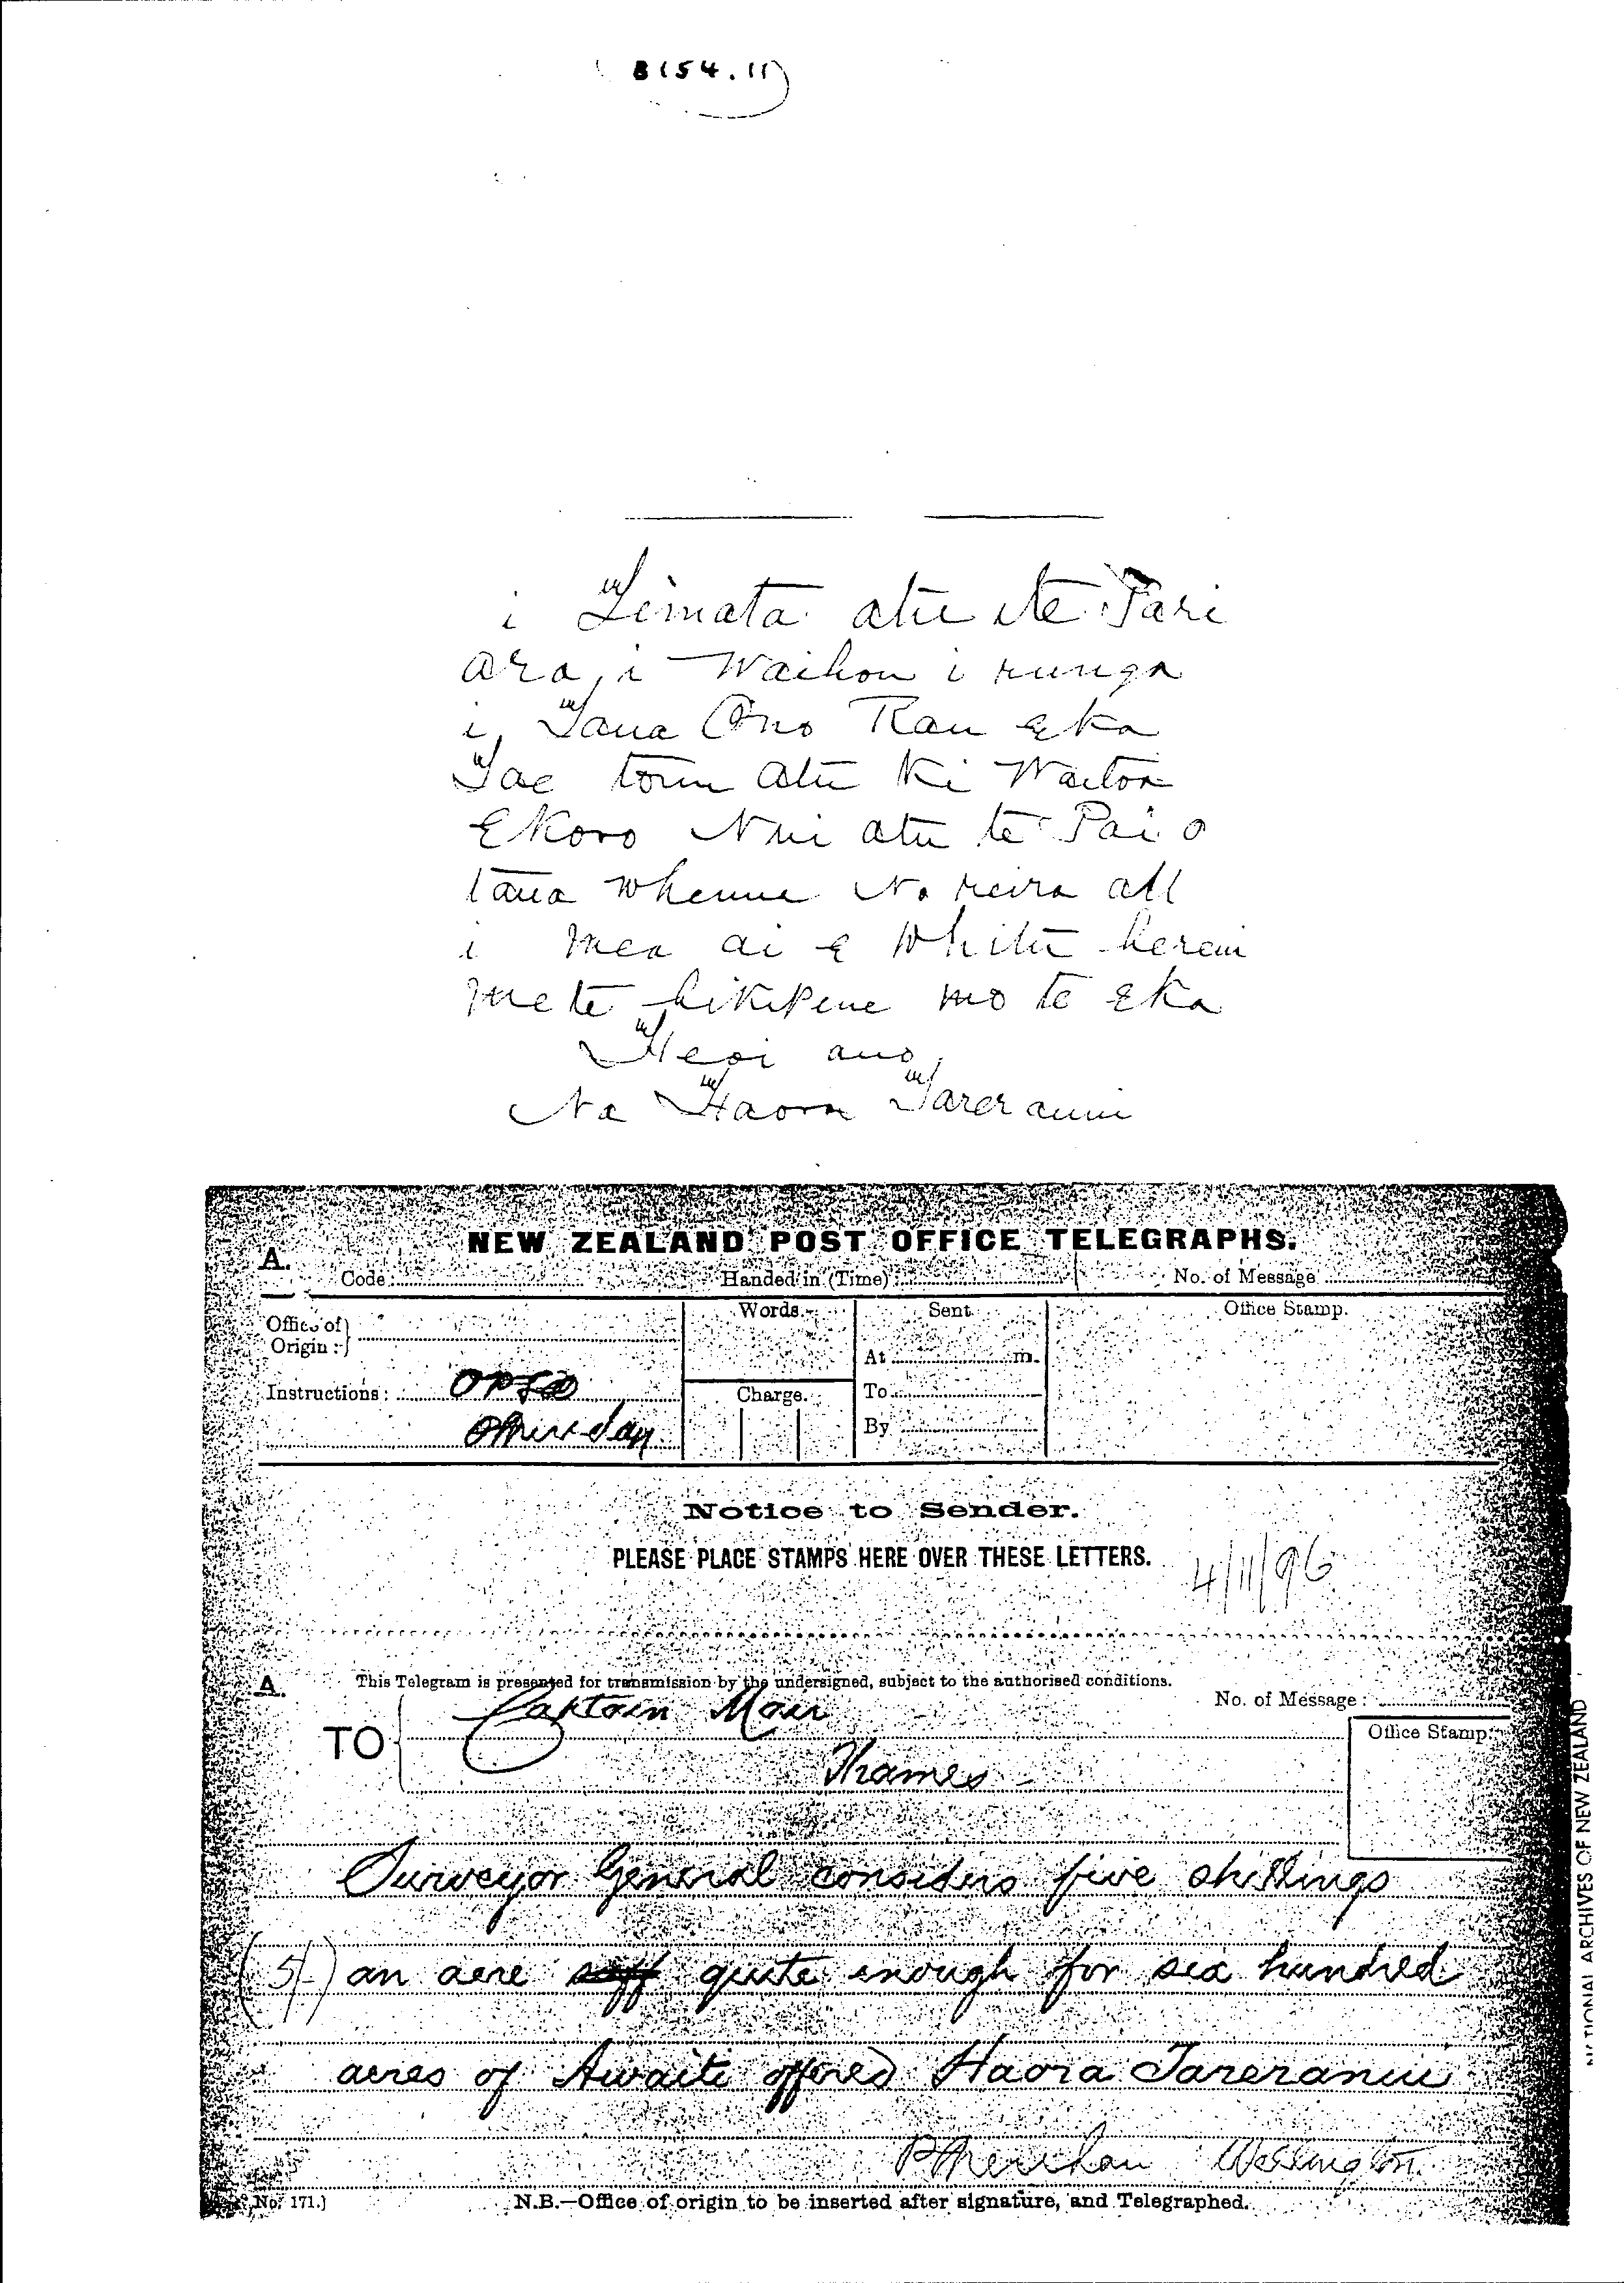 B154.11
i Timata atu ite Pari
ara, i Waihou i runga
i, Taua Ono Rau eka
Tae tonu atu ki Waitoa
Ekoro Nui atu te Pai o
taua Whenua No reira all
i mea ai e Whitu hereni
me te hikipene mo te eka
Heoi ano,
Na Haora Tareranui
NEW ZEALAND POST OFFICE TELEGRAPHS.
A.
Code: Handed in (Time) No. of Message
Office of Origin:
Words. Sent Office Stamp.
At m.
Instructions: OPSO Charge. To
By
Notice to Sender.
PLEASE PLACE STAMPS HERE OVER THESE LETTERS.
4/11/96
A. This Telegram is presented for transmission by the undersigned, subject to the authorised conditions.
No. of Message:
TO Captain Mair
Office Stamp.
Thames
Surveyor General considers five shillings
(5/-) an acre suff quite enough for six hundred
acres of Awaiti offered Haora Tareranui
P Sheridan Wellington
No. 171.] N.B.—Office of origin to be inserted after signature, and Telegraphed.
NATIONAL ARCHIVES OF NEW ZEALAND